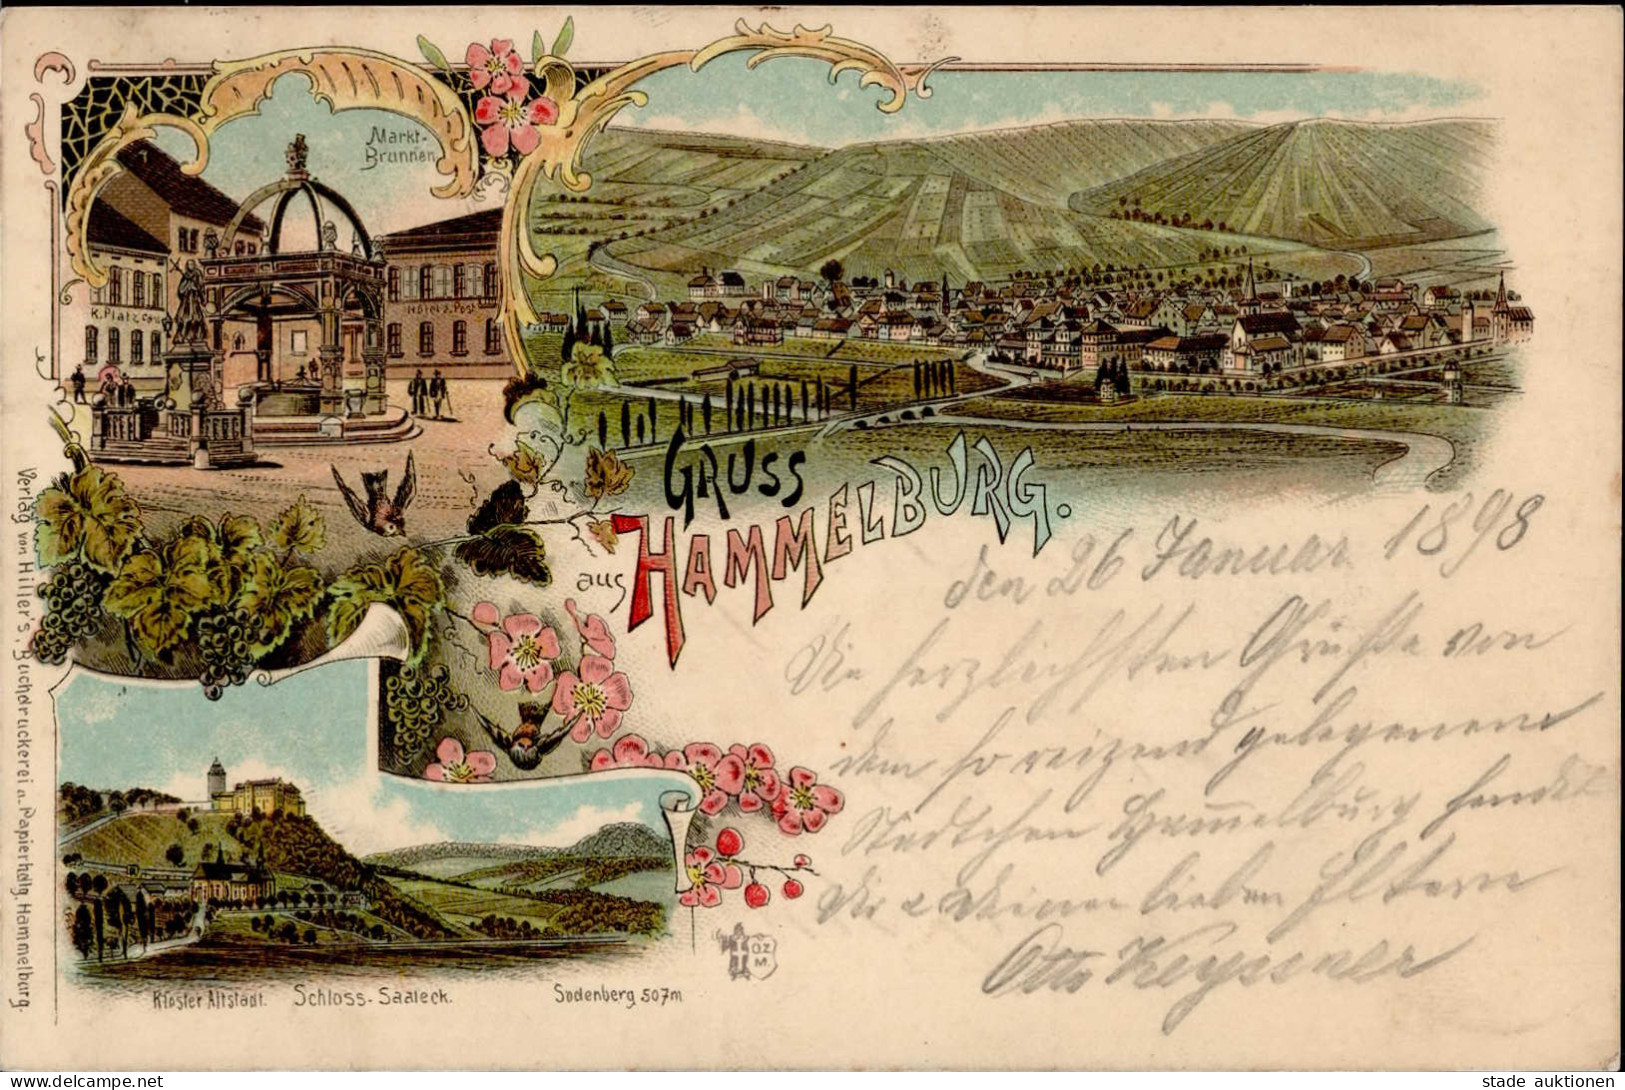 Markt-
Brunnen
K. Platz Co
Hôtel z. Post
GRUSS
aus HAMMELBURG.
den 26 Januar 1898
Die herzlichsten Grüße von
dem so reizend gelegenen
Städtchen Hammelburg sendet
Dir & Deinen lieben Eltern
Otto Keyssner
Kloster Altstadt. Schloss-Saaleck. Sodenberg 507m
O.Z.
M.
Verlag von Hiller's, Buchdruckerei u. Papierhdlg. Hammelburg.
stade auktionen